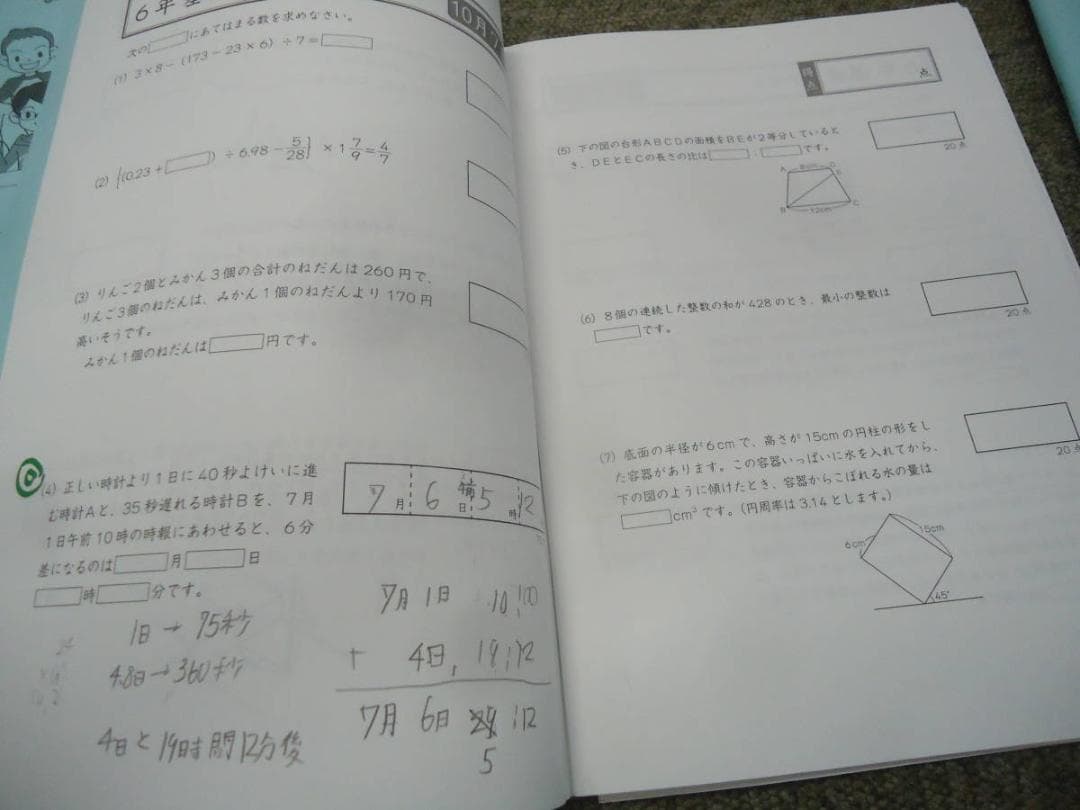 6年
10月
次の□にあてはまる数を求めなさい。
(1) 3×8-(173-23×6)÷7=□
(2) {(0.23+□)÷6.98-5/28}×1 7/9=4/7
(3) りんご2個とみかん3個の合計のねだんは260円で、
りんご3個のねだんは、みかん1個のねだんより170円
高いそうです。
みかん1個のねだんは□円です。
(4) 正しい時計より1日に40秒よけいに進
む時計Aと、35秒遅れる時計Bを、7月
1日午前10時の時報にあわせると、6分
差になるのは□月□日
□時□分です。
7月6日午前5時12
1日→75秒
4.8日→360秒
4日と19時間12分後
7月1日 10:00
+ 4日, 19:12
7月 6日 29:12
5
得点 点
(5) 下の図の台形ABCDの面積をBEが2等分していると
き、DEとECの長さの比は□:□です。
20点
A D
E
B C
12cm
(6) 8個の連続した整数の和が428のとき、最小の整数は
□です。
20点
(7) 底面の半径が6cmで、高さが15cmの円柱の形をし
た容器があります。この容器いっぱいに水を入れてから、
下の図のように傾けたとき、容器からこぼれる水の量は
□cm³です。(円周率は3.14とします。)
20点
6cm
15cm
45°